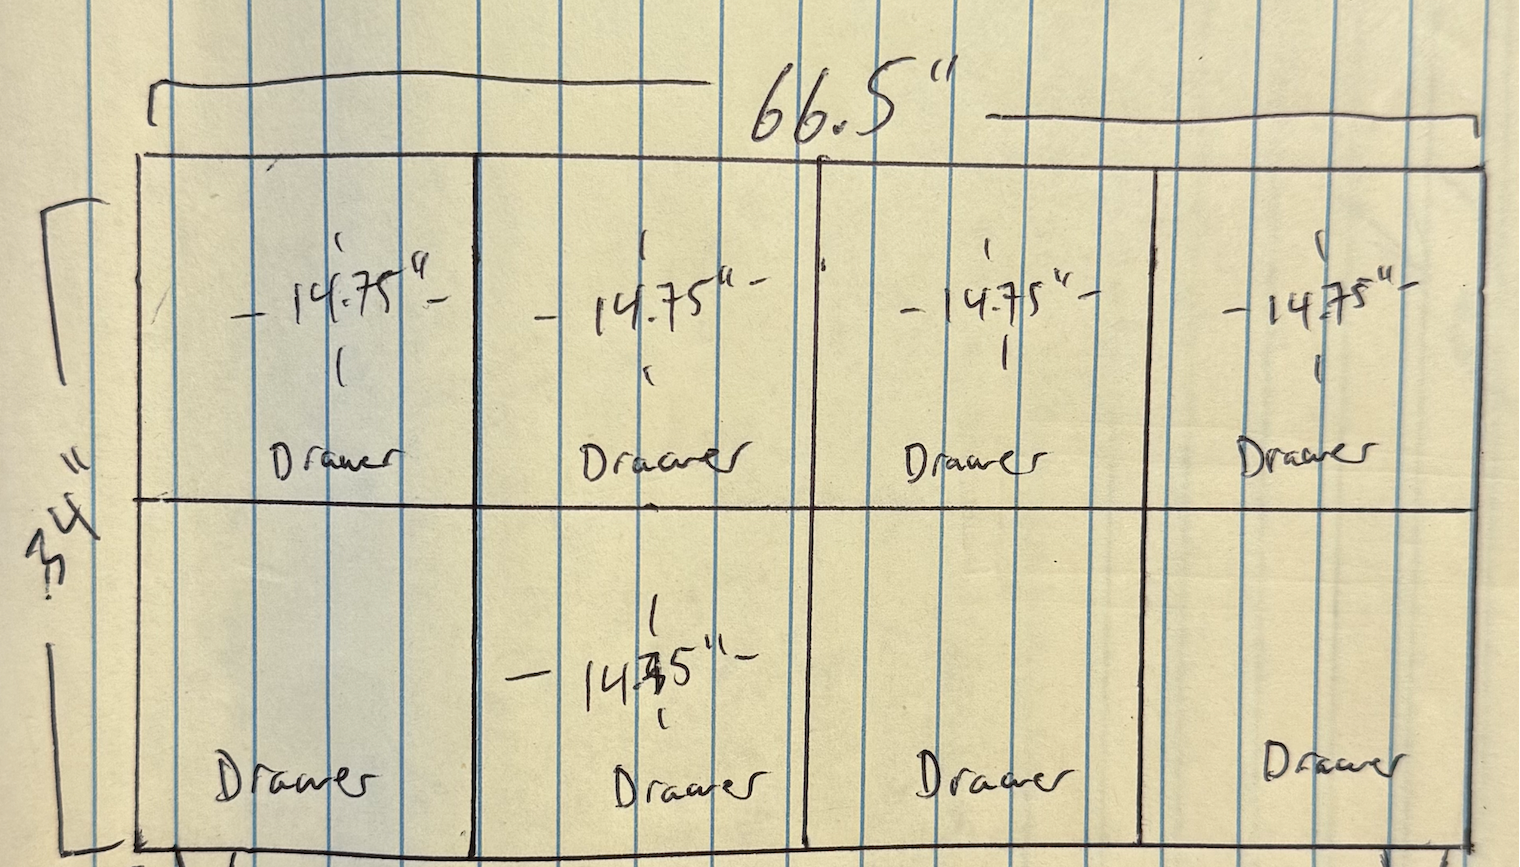 66.5"
14.75" 14.75" 14.75" 14.75"
Drawer Drawer Drawer Drawer
34"
14.75"
Drawer Drawer Drawer Drawer